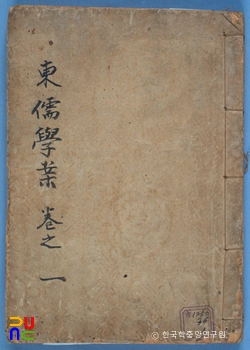 東儒學案 卷之一
©한국학중앙연구원